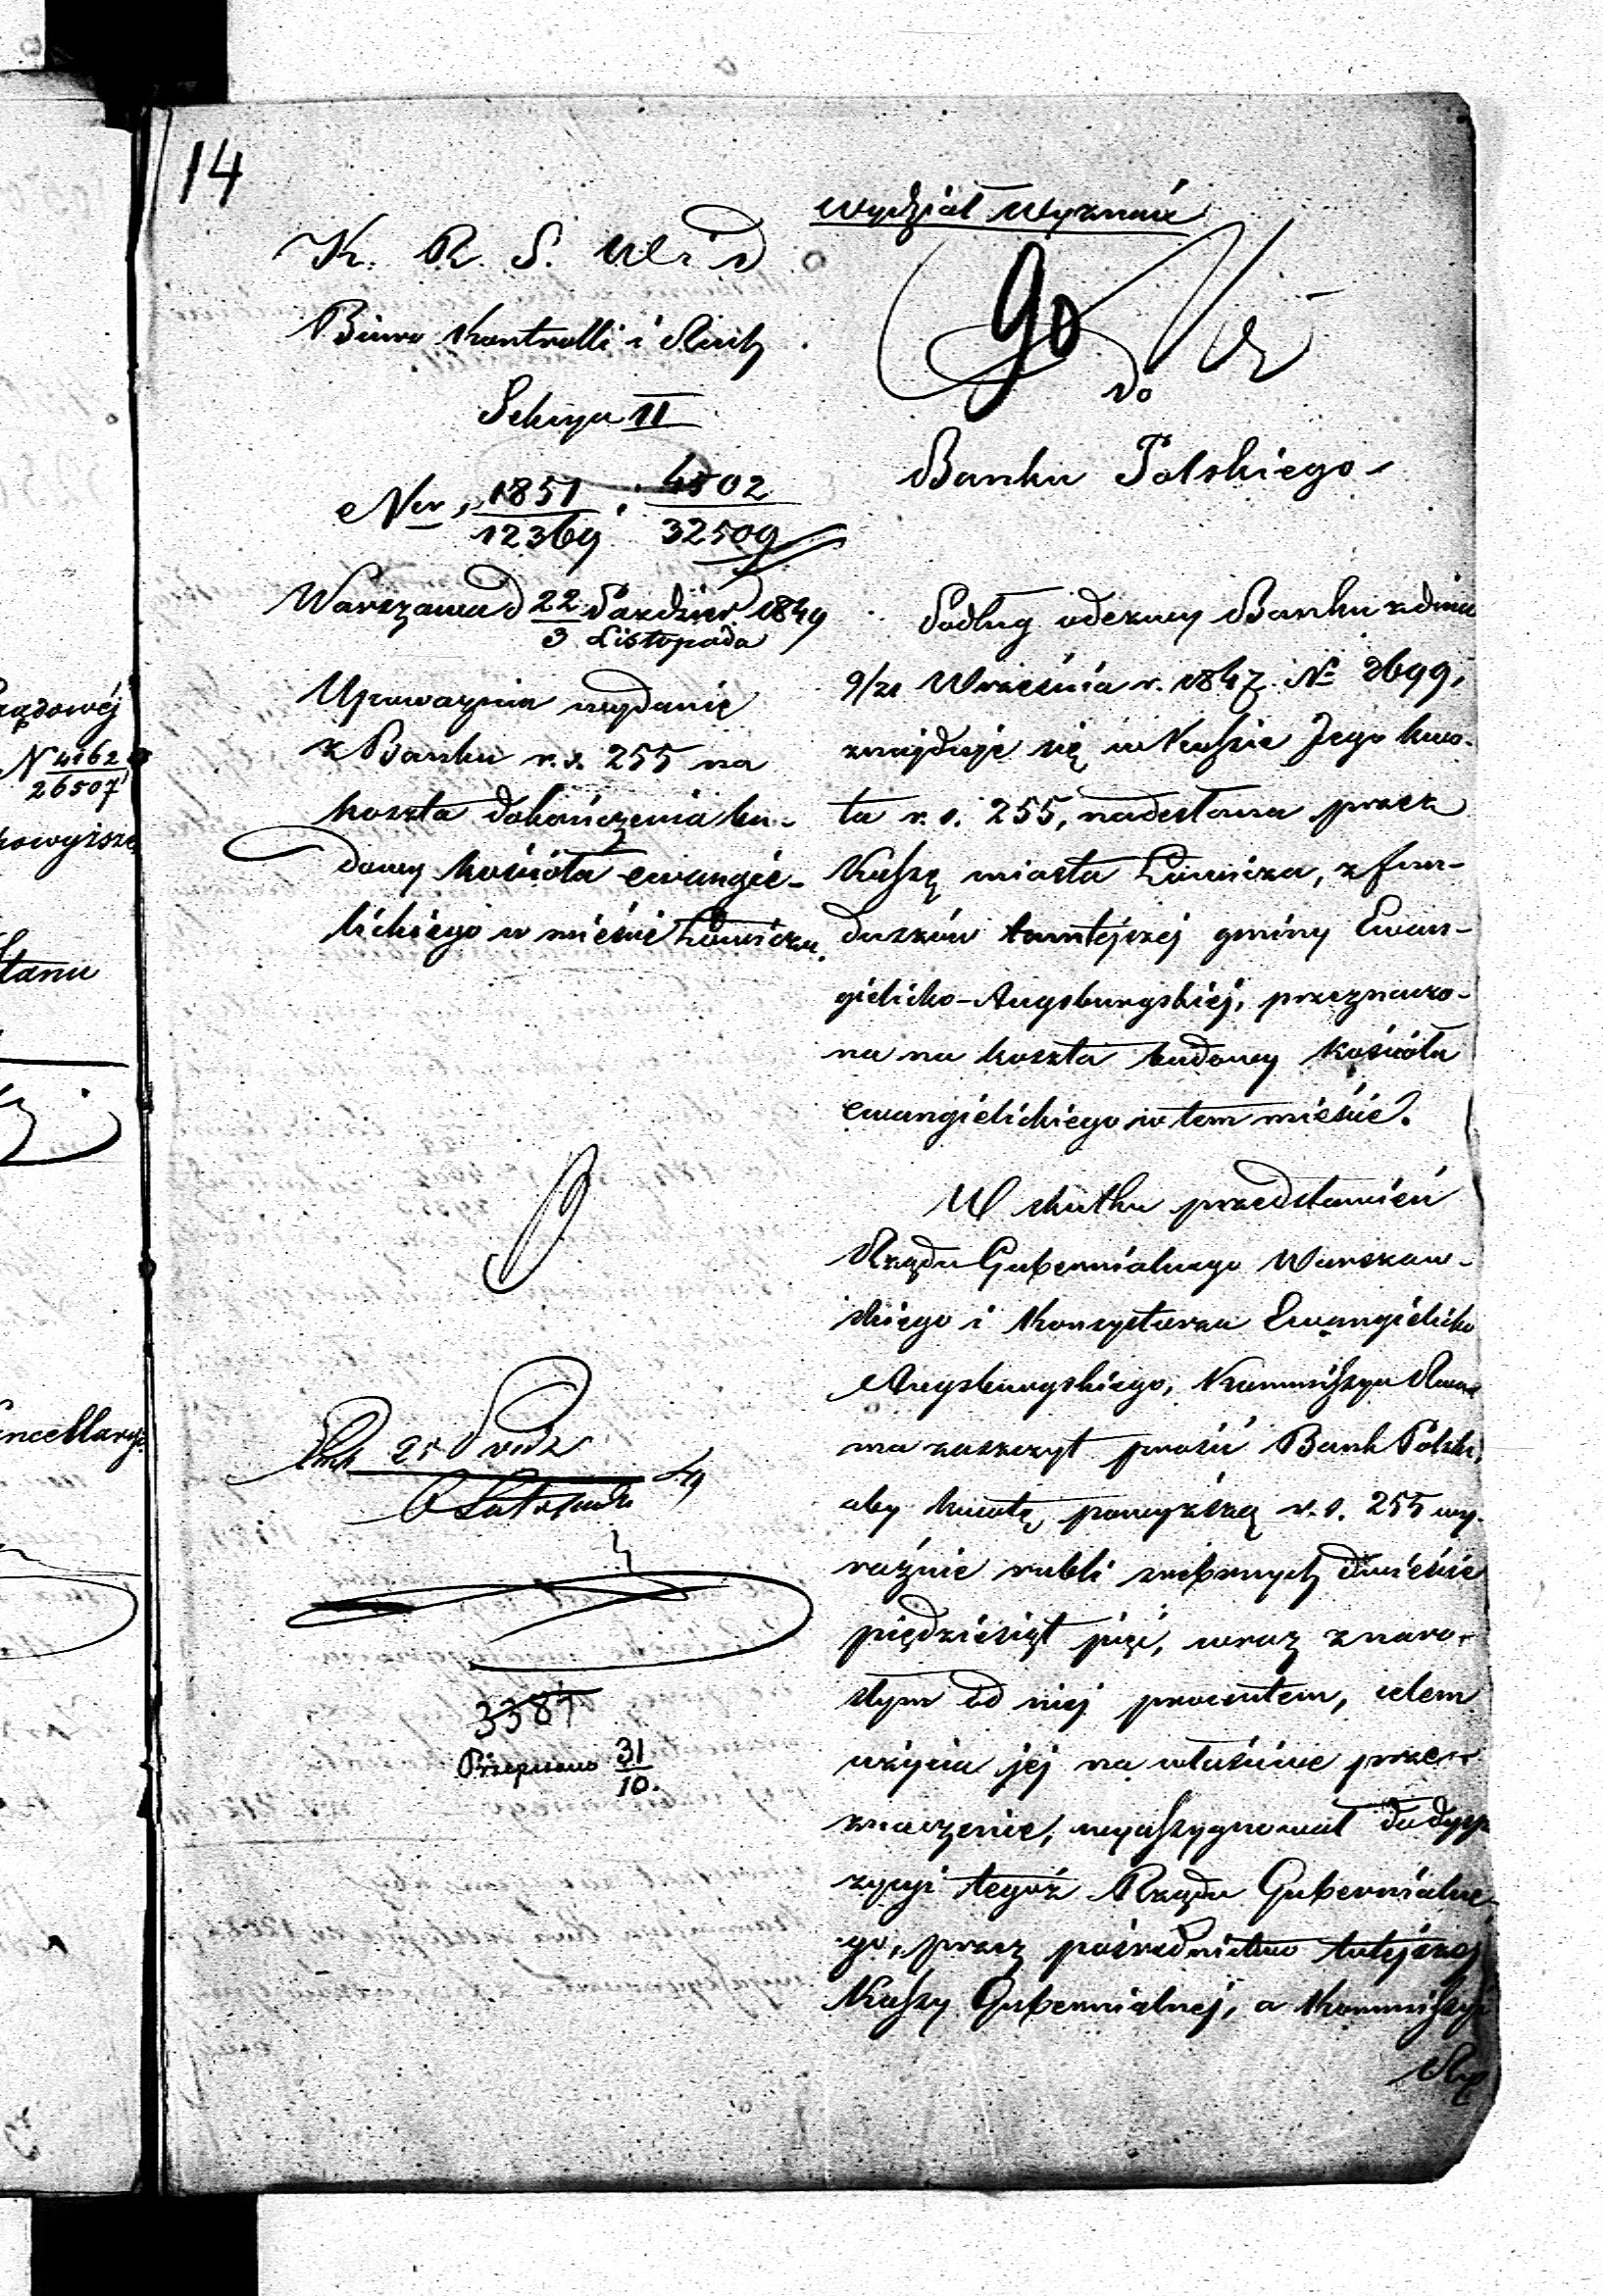 14
Wydział Wyznań
K. R. S. W. i D.
Biuro Kontrolli i Rach.
Sekcya II
90
do
Banku Polskiego
Ner 1851/12369 . 4502/32509
Warszawa d 22 Paździer. / 3 Listopada 1849
Upoważnia wydanie
z Banku r. s. 255 na
koszta dokończenia bu-
dowy kościoła ewangie-
lickiego w mieście Łowiczu.
Podług odezwy Banku z dnia
9/21 Września r. 1847 № 2699,
znajduje się w Kassie Jego kwo-
ta r. s. 255, nadesłana przez
Kassę miasta Łowicza, z fun-
duszów tamtejszej gminy Ewan-
gielicko-Augsburgskiej, przeznaczo-
na na koszta budowy kościoła
ewangielickiego w tem mieście.
W skutku przedstawień
Rządu Gubernialnego Warszaw-
skiego i Konsystorza Ewangielicko
Augsburgskiego, Kommissya Rząd
ma zaszczyt prosić Bank Polski,
aby kwotę powyższą r. s. 255 wy-
raźnie rubli srebrnych dwieście
pięćdziesiąt pięć, wraz z naro-
słym od niej procentem, celem
użycia jej na właściwe prze-
znaczenie, wyassygnował do dyspo
zycyi tegoż Rządu Gubernialne-
go, przez pośrednictwo tutejszej
Kassy Gubernialnej, a Kommissyę
Rzą
25
49
3387
Przepisano 31/10.
rządowéj
N 4162/26507
powyższe
Stanu
Kancellaryi